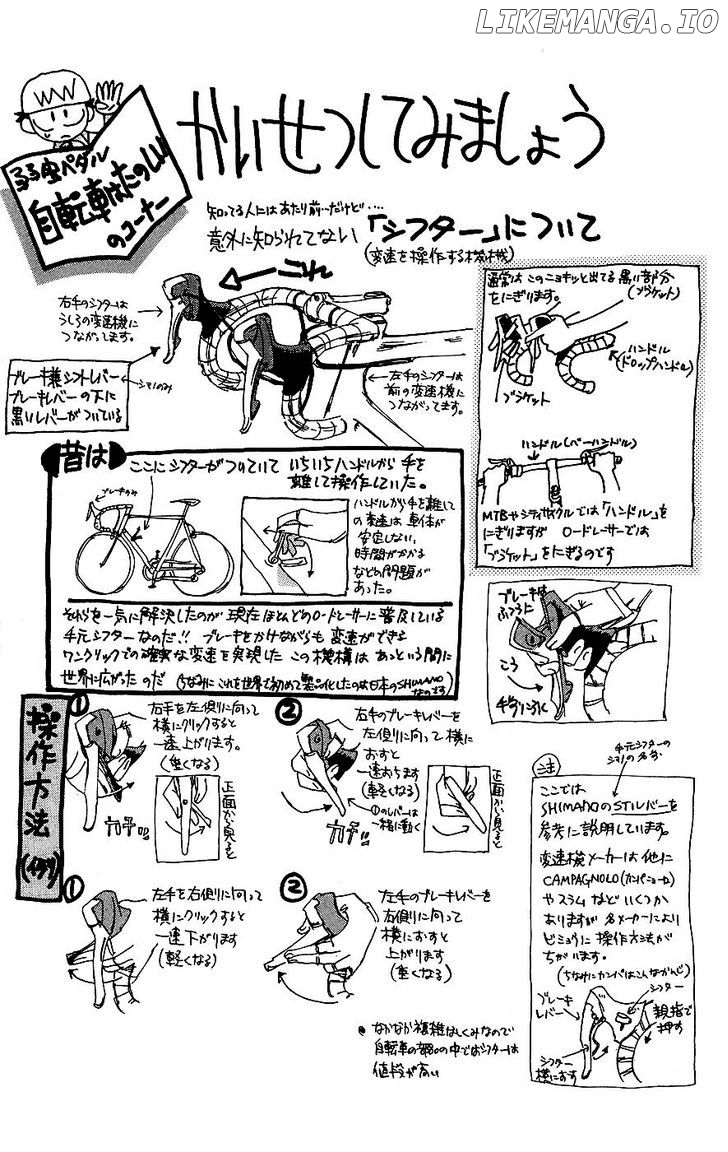 LIKEMANGA.IO
かいせつしてみましょう
弱虫ペダル
自転車はたのしい
のコーナー
知ってる人にはあたり前…だけど…
意外に知られてない「シフター」について
(変速を操作する機械)
これ
右手のシフターは
うしろの変速機に
つながってます。
ブレーキ兼シフトレバー
ブレーキレバーの下に
黒いレバーがついている
シマノのみ
左手のシフターは
前の変速機に
つながってます。
通常はこのニョキッと出てる黒い部分
(ブラケット)
をにぎります。
ハンドル
(ドロップハンドル)
ブラケット
ハンドル(バーハンドル)
MTBやシティサイクルでは「ハンドル」を
にぎりますが ロードレーサーでは
「ブラケット」をにぎるのです
昔は
ここにシフターがついていて いちいちハンドルから手を
離して操作していた。
ブレーキのみ
ハンドルから手を離して
の変速は 車体が
安定しない、
時間がかかる
などの問題が
あった。
それらを一気に解決したのが 現在ほとんどのロードレーサーに普及している
手元シフターなのだ!! ブレーキをかけながらも 変速ができる
ワンクリックでの確実な変速を実現した この機構は あっという間に
世界に広がったのだ (ちなみにこれを世界で初めて製品化したのは日本のSHIMANO
なのです)
ブレーキは
ふつうに
こう
手前にひく
操作方法
(例)
①
右手を左側りに向って
横にクリックすると
一速上がります。
(重くなる)
正面から見ると
②
右手のブレーキレバーを
左側りに向って 横に
おすと
一速おちます
(軽くなる)
①のレバーは
一緒に動く
正面から見ると
①
左手を右側りに向って
横にクリックすると
一速下がります
(軽くなる)
②
左手のブレーキレバーを
右側りに向って
横におすと
上がります
(重くなる)
●なかなか複雑なしくみなので
自転車の部品の中ではシフターは
値段が高い
手元シフターの
シマノの名称
注
ここでは
SHIMANOのSTIレバーを
参考に説明しています。
変速機メーカーは他に
CAMPAGNOLO(カンパニョーロ)
やスラムなどいくつか
ありますが各メーカーにより
ビミョうに操作方法が
ちがいます。
(ちなみにカンパはこんなかんじ)
ブレーキ
レバー
シフター
親指で
押す
シフター
横におす